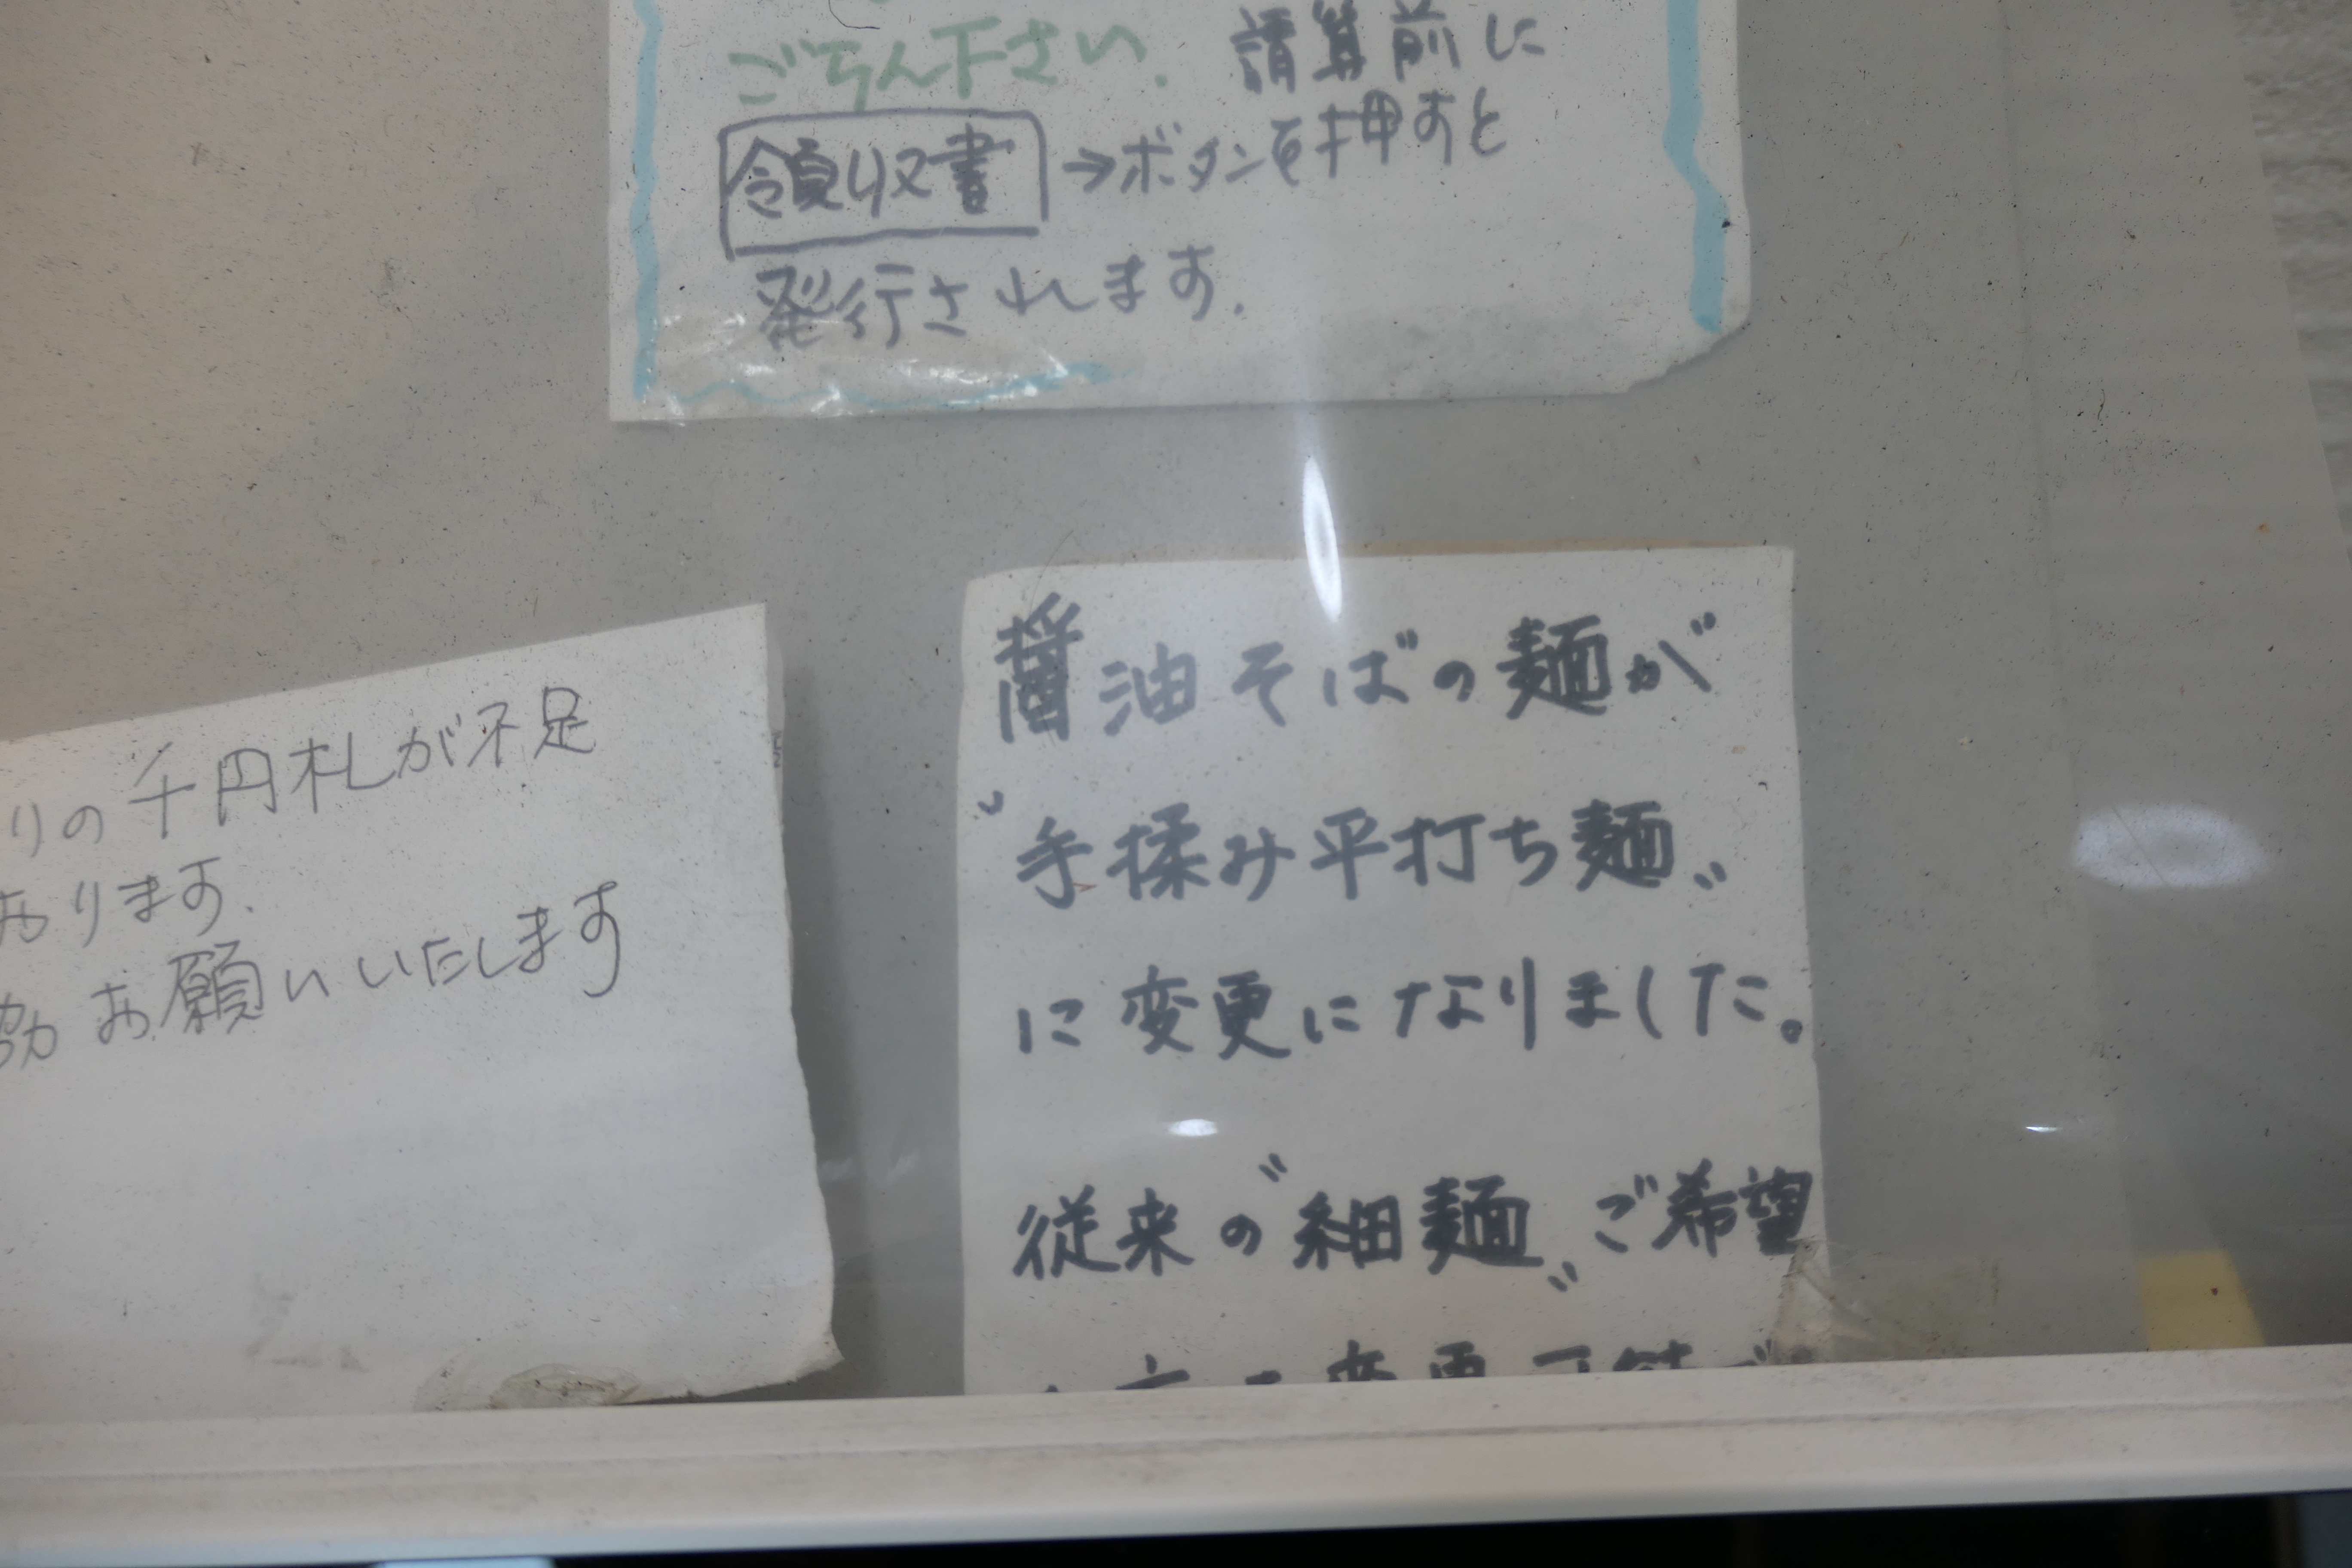 ご了ん下さい. 請算前に
領収書 →ボタンを押すと
発行されます.
りの千円札が不足
おります.
協力お願いいたします
醤油そばの麺が
〝手揉み平打ち麺〟
に変更になりました。
従来の〝細麺〟ご希望